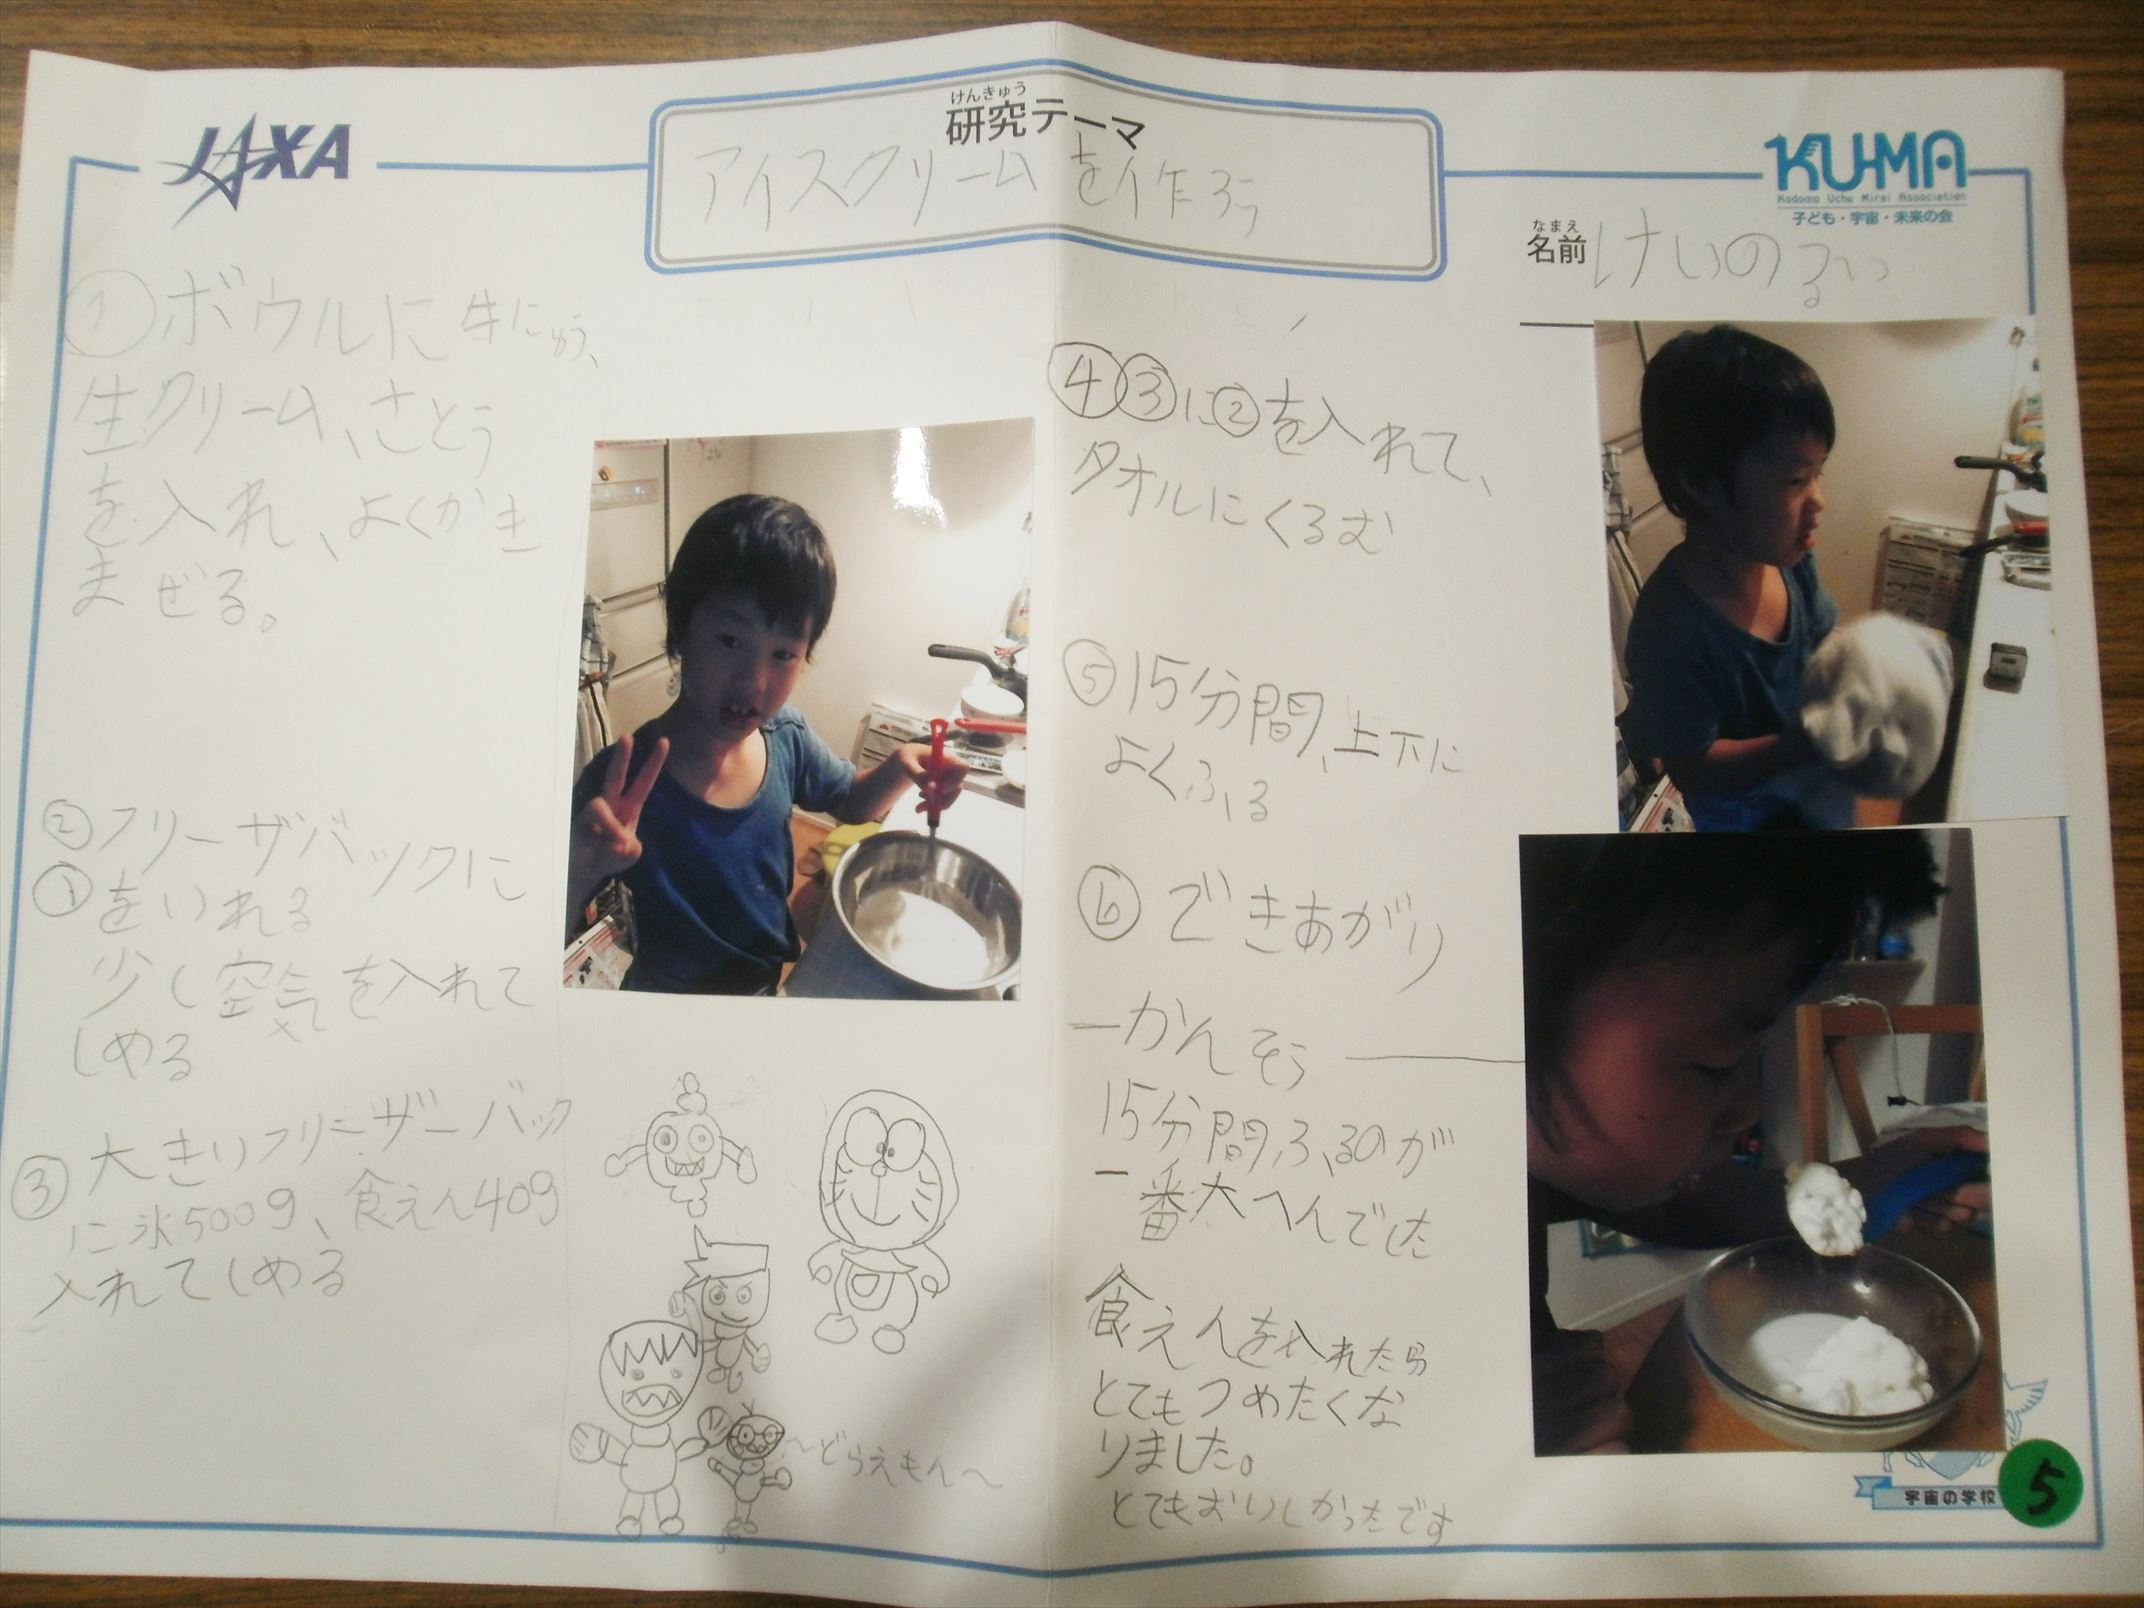 JAXA
けんきゅう
研究テーマ
アイスクリームを作ろう
KU-MA
Kodomo Uchu Mirai Association
子ども・宇宙・未来の会
なまえ
名前 けいのるい
① ボウルに牛にゅう、
生クリーム、さとう
を入れ、よくかき
まぜる。
② フリーザバックに
① をいれる
少し空気を入れて
しめる
③ 大きいフリーザーバック
に氷500g、食えん40g
入れてしめる
~どらえもん~
④③に②を入れて、
タオルにくるむ
⑤ 15分間、上下に
よくふる
⑥ できあがり
ーかんそう
15分間ふるのが
一番大へんでした
食えんを入れたら
とてもつめたくな
りました。
とてもおいしかったです
宇宙の学校
5